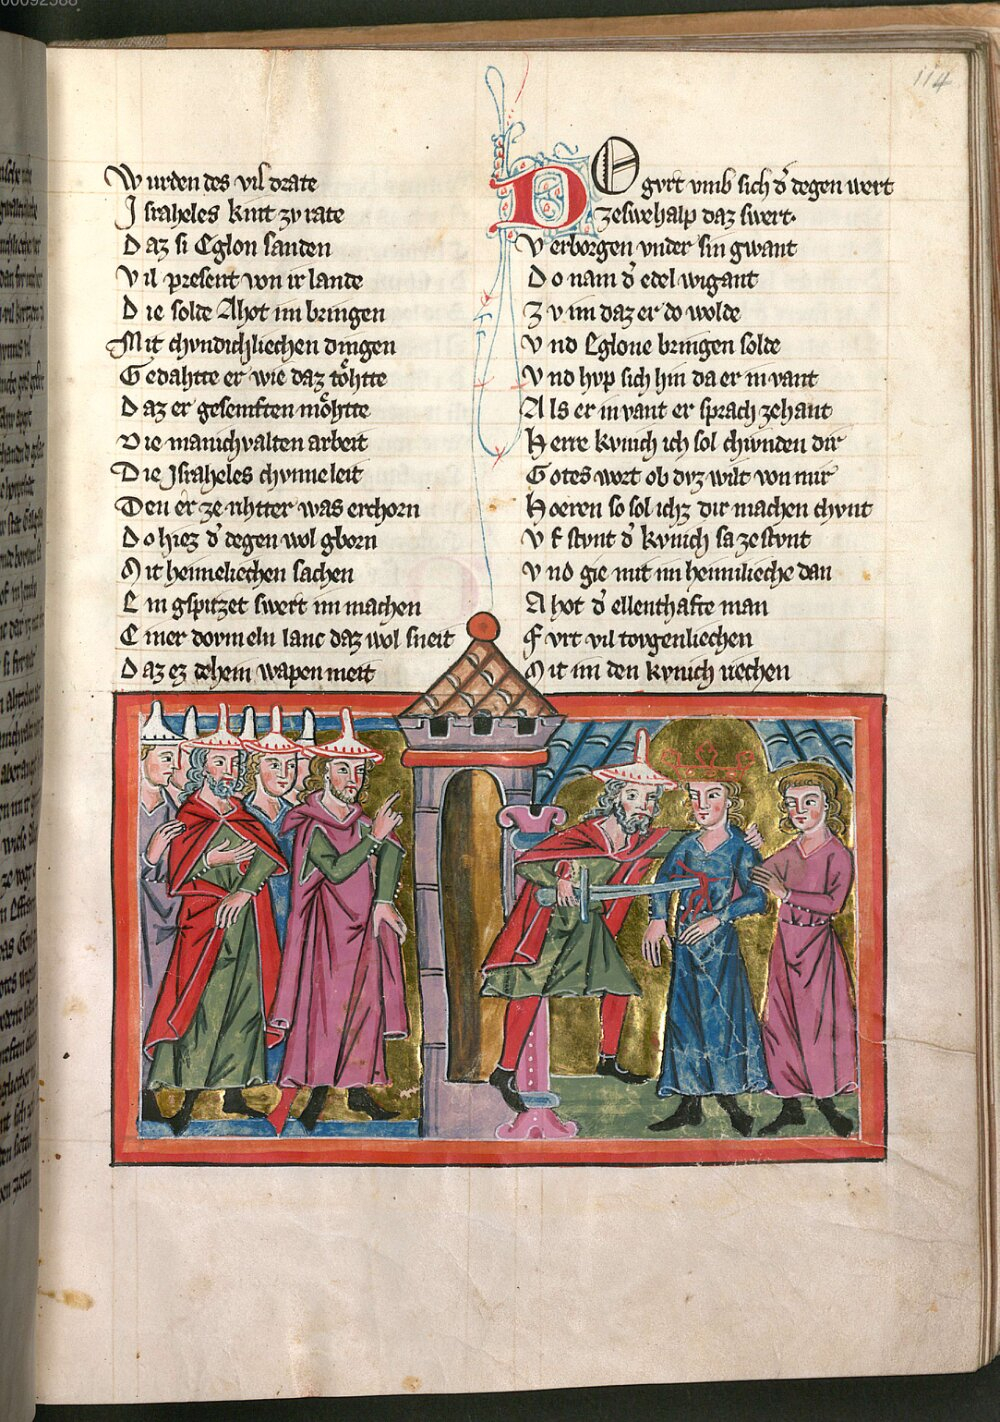 114
Wurden des vil drate
Israheles kint zv rate
Daz si Eglon sanden
Vil present von ir lande
Die solde Ahot im bringen
Mit chvndichliechen dingen
Gedahtte er wie daz to̊htte
Daz er gesemften mo̊htte
Die manichvalten arbeit
Die Israheles chvnne leit
Den er ze rihtter was erchorn
Do hiez d̾ degen wol gborn
Mit heimeliechen sachen
Ein gspitzet swert im machen
Einer dovmeln lanc daz wol sneit
Daz ez dehein wapen meit
DO gvrt vmb sich d̾ degen wert
zeswehalp daz swert.
Verborgen vnder sin gwant
Do nam d̾ edel wigant
Zv im daz er do wolde
Vnd Eglone bringen solde
Vnd hvp sich hin da er in vant
Als er in vant er sprach zehant
Herre kvnich ich sol chvnden dir
Gotes wort ob dvz wilt von mir
Hoeren so sol ichz dir machen chvnt
Vf stvnt d̾ kvnich sa ze stvnt
Vnd gie mit im heimilieche dan
Ahot d̾ ellenthafte man
Fvrt vil tovgenliechen
Mit im den kvnich riechen